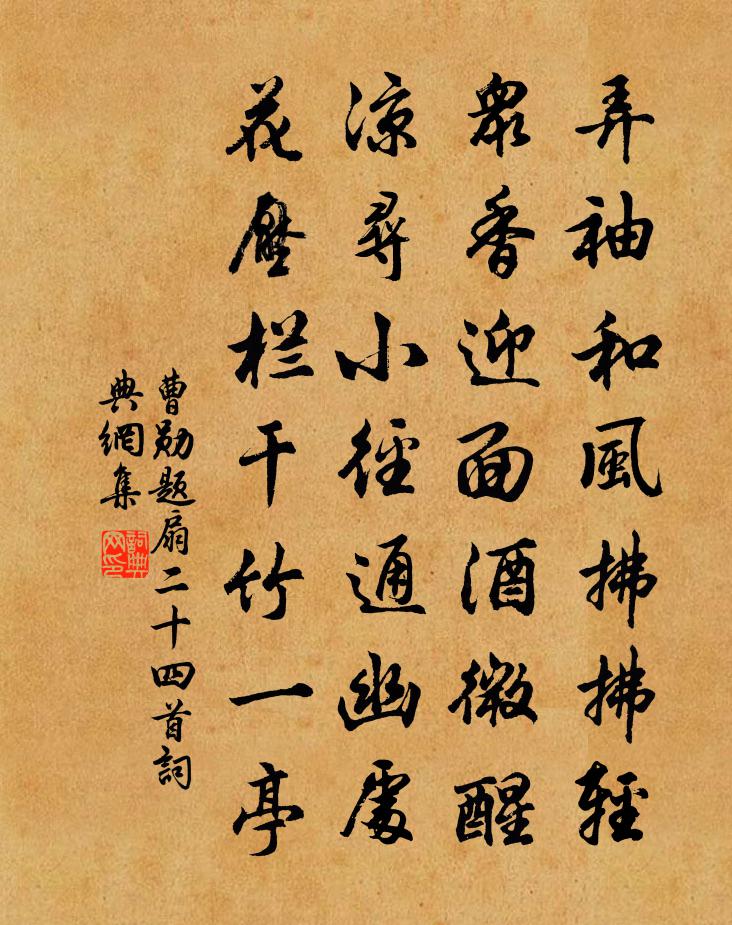 弄袖和風拂拂輕
眾香迎面酒微醒
涼尋小徑通幽處
花壓栏干竹一亭
曹勋题扇二十四首詞
典網集
詞典
网印